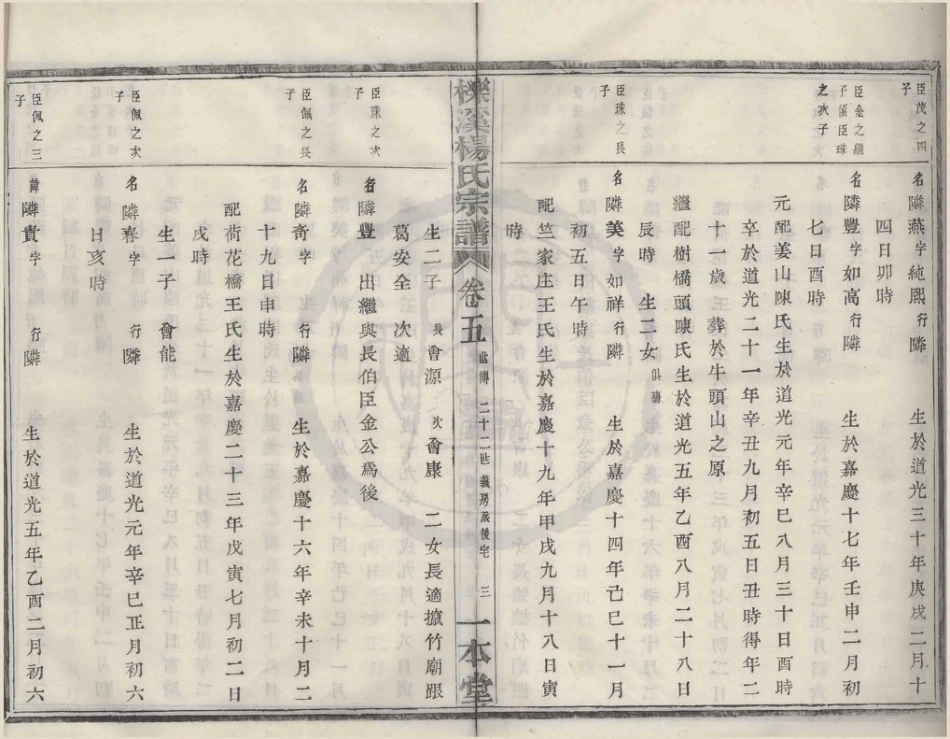 臣茂之四
子
名隣燕字純熙行隣 生於道光三十年庚戌二月十
四日卯時
臣金之繼
子係臣珠
之次子
名隣豐字如高行隣 生於嘉慶十七年壬申二月初
七日酉時
元配姜山陳氏生於道光元年辛巳八月三十日酉時
辛於道光二十一年辛丑九月初五日丑時得年二
十一歲 葬於牛頭山之原
繼配樹橋頭陳氏生於道光五年乙酉八月二十八日
辰時 生二女 俱殤
臣珠之長
子
名隣美字如祥行隣 生於嘉慶十四年己巳十一月
初五日午時
配竺家庄王氏生於嘉慶十九年甲戌九月十八日寅
時
櫟溪楊氏宗譜 卷五 世傳 二十二世 義房派後宅 三 一本堂
生二子 長會源 次會康 二女長適摭竹廟跟
葛安全 次適
臣珠之次
子
行隣豐 出繼與長伯臣金公爲後
臣佩之長
子
名隣奇字 行隣 生於嘉慶十六年辛未十月二
十九日申時
配荷花橋王氏生於嘉慶二十三年戊寅七月初二日
戌時
生一子 會能
臣佩之次
子
名隣春字 行隣 生於道光元年辛巳正月初六
日亥時
臣佩之三
子
諱隣貴字 行隣 生於道光五年乙酉二月初六